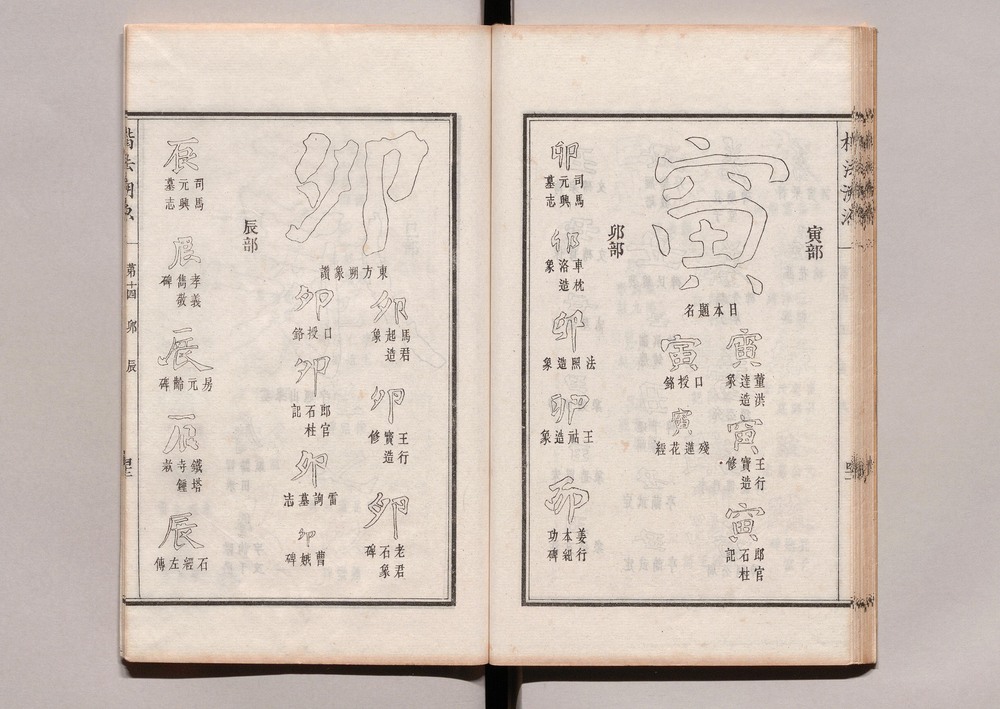 楷法溯源
寅部
寅
日本題名
寅
董洪達造象
寅
王行寶造修
寅
郎官石柱記
寅
口授銘
寅
殘蓮花經
卯部
卯
司馬元興墓志
卯
車枕洛造象
卯
法照造象
卯
王祜造象
卯
姜行本紀功碑
卯
東方朔象讚
卯
馬君起造象
卯
王行寶造修
卯
老君石象碑
卯
口授銘
卯
郎官石柱記
卯
雷詢墓志
卯
曹娥碑
辰部
辰
司馬元興墓志
辰
孝義雋敬碑
辰
房元齡碑
辰
鐵塔寺鐘款
辰
石經左傳
楷法溯源 第十四 卯 辰